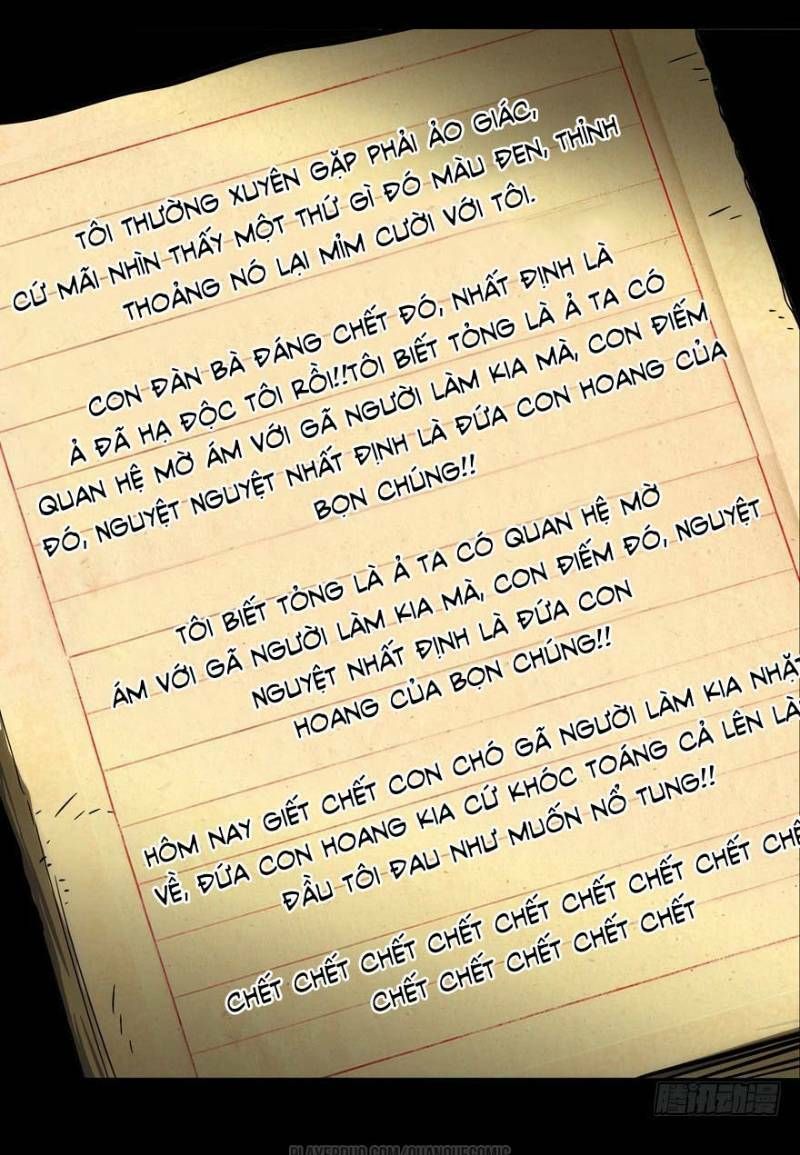 TÔI THƯỜNG XUYÊN GẶP PHẢI ẢO GIÁC,
CỨ MÃI NHÌN THẤY MỘT THỨ GÌ ĐÓ MÀU ĐEN, THỈNH
THOẢNG NÓ LẠI MỈM CƯỜI VỚI TÔI.
CON ĐÀN BÀ ĐÁNG CHẾT ĐÓ, NHẤT ĐỊNH LÀ
Ả ĐÃ HẠ ĐỘC TÔI RỒI!!TÔI BIẾT TỎNG LÀ Ả TA CÓ
QUAN HỆ MỜ ÁM VỚI GÃ NGƯỜI LÀM KIA MÀ, CON ĐIẾM
ĐÓ, NGUYỆT NGUYỆT NHẤT ĐỊNH LÀ ĐỨA CON HOANG CỦA
BỌN CHÚNG!!
TÔI BIẾT TỎNG LÀ Ả TA CÓ QUAN HỆ MỜ
ÁM VỚI GÃ NGƯỜI LÀM KIA MÀ, CON ĐIẾM ĐÓ, NGUYỆT
NGUYỆT NHẤT ĐỊNH LÀ ĐỨA CON
HOANG CỦA BỌN CHÚNG!!
HÔM NAY GIẾT CHẾT CON CHÓ GÃ NGƯỜI LÀM KIA NHẶ
VỀ, ĐỨA CON HOANG KIA CỨ KHÓC TOÁNG CẢ LÊN LÀ
ĐẦU TÔI ĐAU NHƯ MUỐN NỔ TUNG!!
CHẾT CHẾT CHẾT CHẾT CHẾT CHẾT CHẾT CHẾT CHẾ
CHẾT CHẾT CHẾT CHẾT CHẾT
腾讯动漫